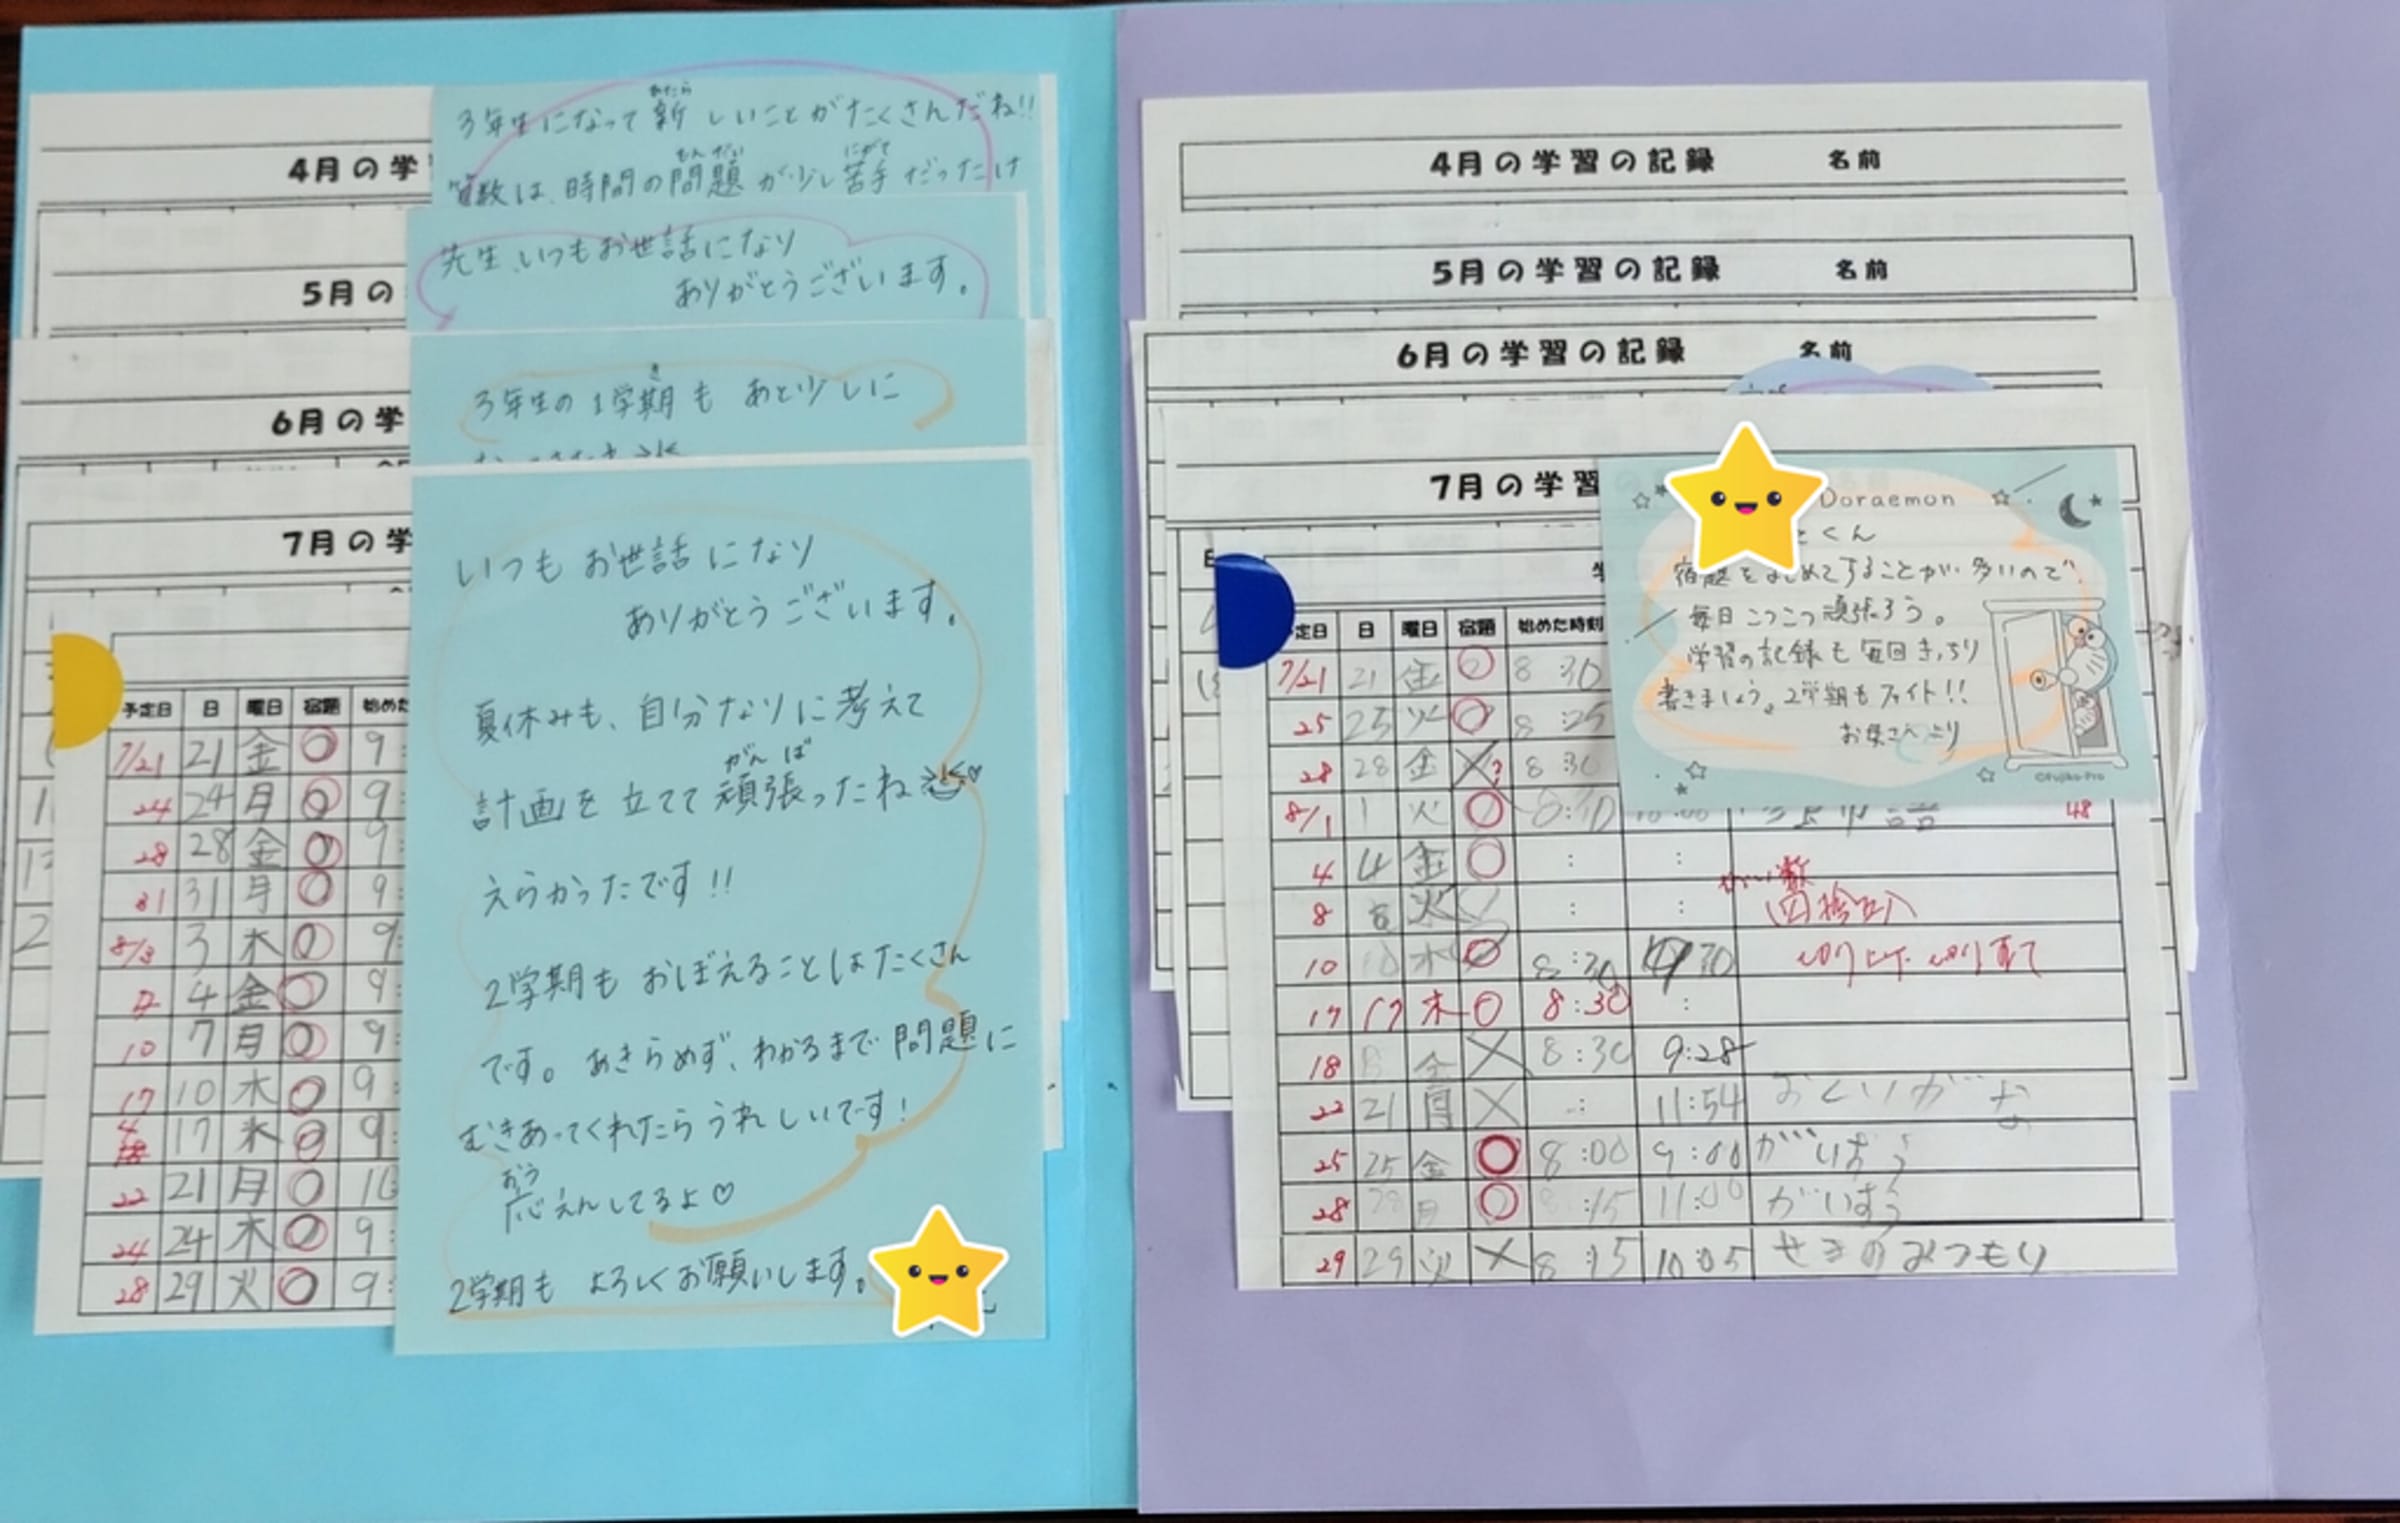 4月の学
3年生になって新しいことがたくさんだね!!
あたら
算数は、時間の問題が少し苦手だったけ
もんだい
にがて
5月の
先生、いつもお世話になり
ありがとうございます。
6月の学
3年生の1学期も あと少しに
き
7月の学
いつもお世話になり
ありがとうございます。
夏休みも、自分なりに考えて
計画を立てて頑張ったね
がんば
えらかったです!!
2学期も おぼえることはたくさん
です。あきらめず、わかるまで問題に
むきあってくれたらうれしいです!
おう
応えんしてるよ♡
2学期も よろしくお願いします。
予定日 日 曜日 宿題 始めた
7/21 21 金 ○ 9:
24 24 月 ○ 9:
28 28 金 ○ 9:
31 31 月 ○ 9:
8/3 3 木 ○ 9:
4 金 ○ 9:
10 7 月 ○ 9:
17 10 木 ○ 9:
17 木 ○ 9:
22 21 月 ○ 10
24 24 木 ○ 9:
28 29 火 ○ 9:
4月の学習の記録 名前
5月の学習の記録 名前
6月の学習の記録 名前
7月の学習
Doraemon
くん
宿題をまとめてすることが多いので、
毎日こつこつ頑張ろう。
学習の記録も毎回きっちり
書きましょう。2学期もファイト!!
お母さんより
©Fujiko-Pro
定日 日 曜日 宿題 始めた時刻
7/21 21 金 ○ 8:30
25 25 火 ○ 8:25
28 28 金 × 8:30
8/1 1 火 ○ 8:30 48
4 4 金 ○ : :
8 8 火 : :
がい数
四捨五入
10 10 木 ○ 8:30 30 切り上げ 切り捨て
17 17 木 ○ 8:30 :
18 金 × 8:30 9:28
22 21 月 × : 11:54 おくりがな
25 25 金 ○ 8:00 9:00 がいすう
28 28 月 ○ :15 11:00 がいすう
29 29 火 × 8:15 10:05 せきのみつもり